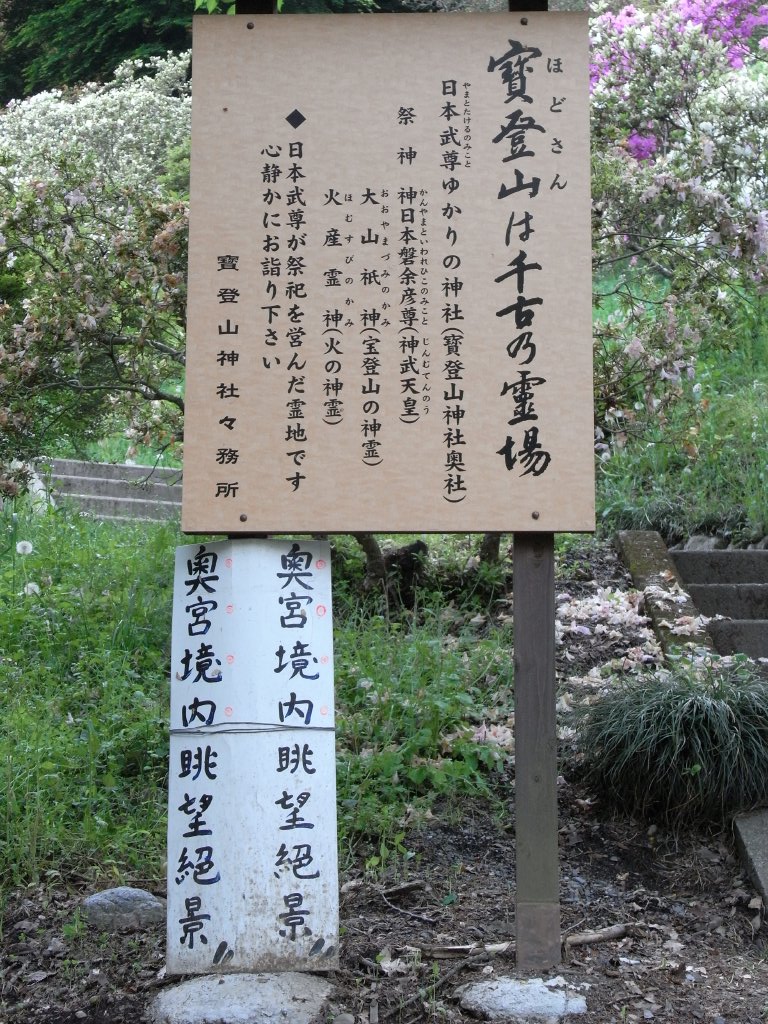 寶登山は千古乃靈場
ほどさん
日本武尊ゆかりの神社(寶登山神社奥社)
やまとたけるのみこと
祭神 神日本磐余彦尊(神武天皇)
かんやまといわれひこのみこと じんむてんのう
大山祇神(宝登山の神霊)
おおやまづみのかみ
火産霊神(火の神霊)
ほむすびのかみ
◆日本武尊が祭祀を営んだ霊地です
心静かにお詣り下さい
寶登山神社々務所
奥宮境内眺望絕景〃
奥宮境内眺望絕景〃